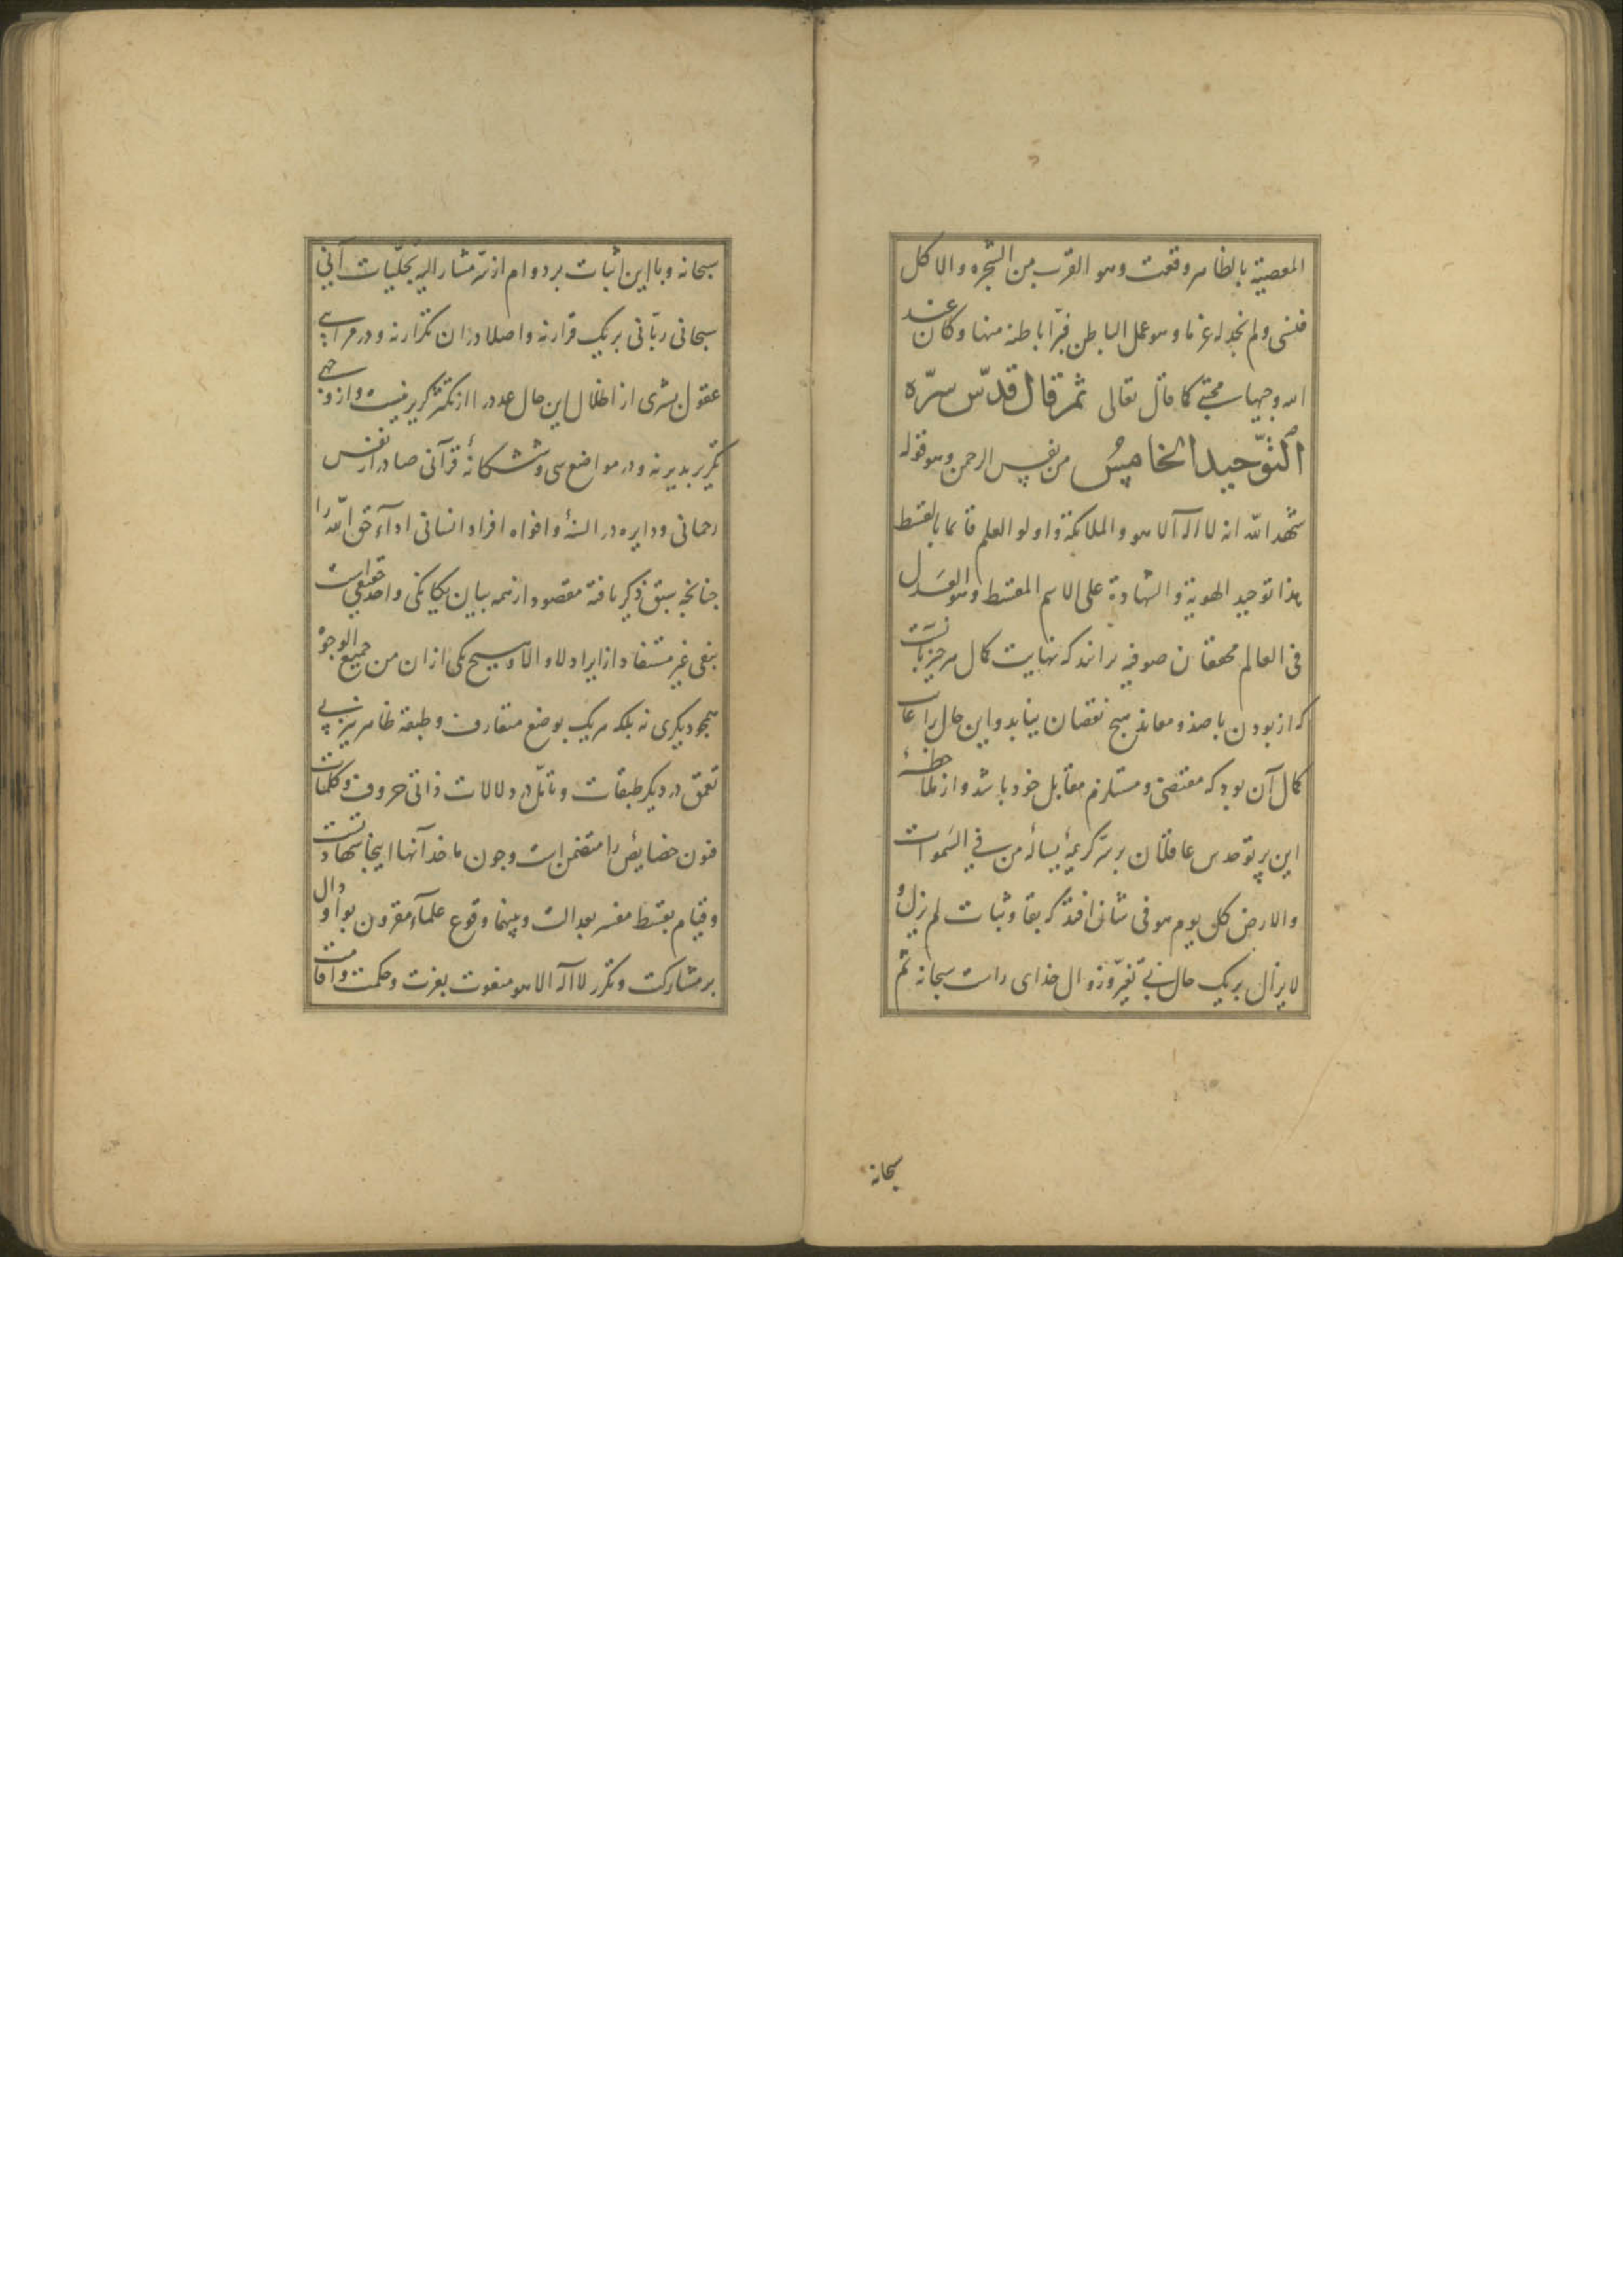 المعصیة بالظاهر وقعت وهو القرب من الشجره والاکل
فنسی ولم نجد له عزما وهو عمل الباطن فبرّا باطنه منها وکان عند
الله وجیها مجتبی کما قال تعالی ثم قال قدّس سرّه
التوّحید الخامِسُ من نفس الرحمن وهو قوله
شهد الله انه لا اله الا هو والملائکة واولو العلم قائما بالقسط
هذا توحید الهویة والشهادة علی الاسم المقسط وهو العَدل
فی العالم محققان صوفیه برانند که نهایت کمال هر چیز بآنست
که از بودن با ضد و معاند هیچ نقصان نیابد و این حال را غایت
کمال آن بود که مقتضی و مستلزم مقابل خود باشد و از ملاحظهٔ
این پرتو حدس عاقلان بر سرّ کریمهٔ یسأله من فی السَموات
والارض کل یوم هو فی شأن افتد که بقا و ثبات لم یزل و
لا یزال بریک حال بی تغیّر و زوال خدای راست سبحانه ثم
سبحانه
سبحانه و با این اثبات بر دوام از سرّ مشار الیه تجلّیات آنی
سبحانی ربّانی بر یک قرار نه و اصلا دران تکرار نه و در مرائی
عقول بشری از اظلال این حال عدد را از تکثر گزیر نیست و از وجهی
تکریر پذیر نه و در مواضع سی و ششکانهٔ قرآنی صادر از نفس
رحمانی و دایره در السنهٔ و افواه افراد انسانی اداء حق اللّه را
چنانچه سبق ذکر یافته مقصود از همه بیان یکانکی واحد حقیقی است
بنفی غیر مستفاد از ایراد لا و الاّ و هیچ یکی ازان من جمیع الوجوهْ
همچو دیکری نه بلکه هر یک بوضع متعارف و طبقهٔ ظاهر نیز بی
تعمق در دیکر طبقات و تأمّل در دلالات ذاتی حروف و کلمات
فنون خصایص را متضمن است و چون ماخذ آنها اینجا شهادتست
و قیام بقسط مفسر بعدالت و بینهما وقوع علمآء مقرون بواو دال
بر مشارکت و تکرر لا اله الا هو منعوت بعزت و حکمت و اقامت